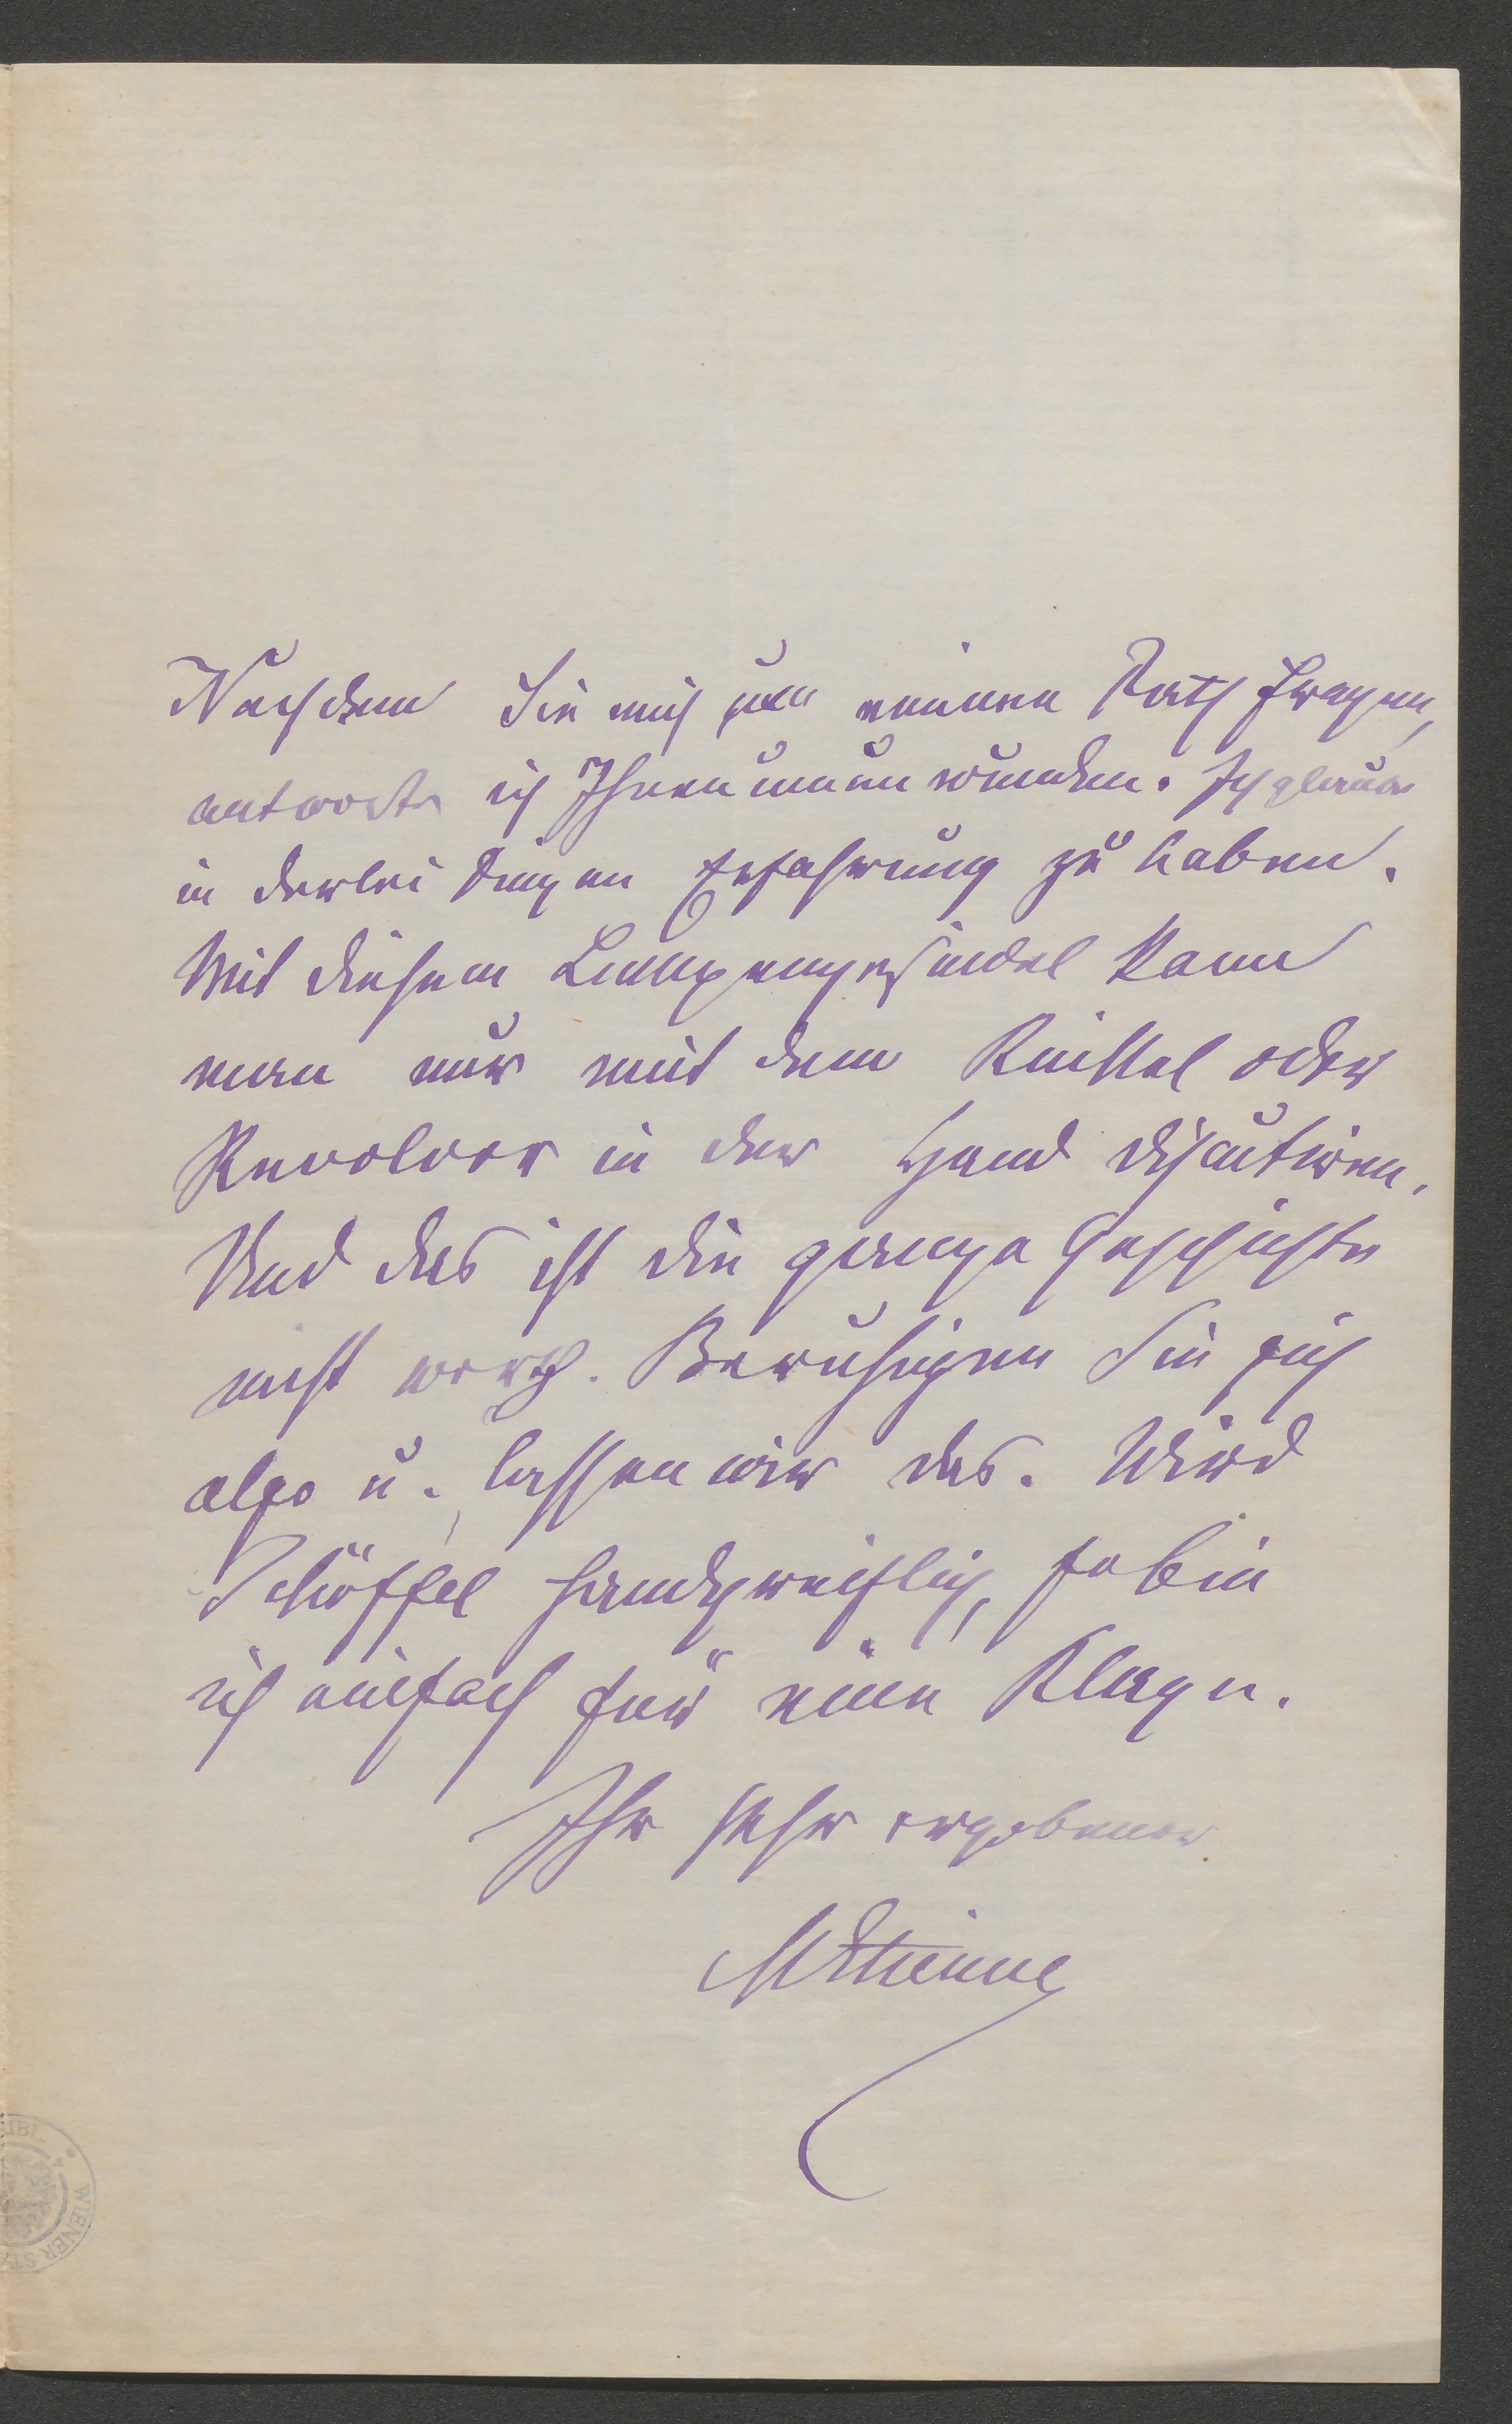 Nachdem Sie mich um meinen Rath fragen,
antworte ich Ihnen unumwunden. Ich glaube
in derlei Dingen Erfahrung zu haben.
Mit diesem Lumpengesindel kann
man nur mit dem Knittel oder
Revolver in der Hand discutiren.
Und das ist die ganze Geschichte
nicht werth. Beruhigen Sie sich
also u. lassen wir das. Wird
Schöffel handgreiflich, so bin
ich einfach für eine Klage.
Ihr sehr ergebener
MEtienne
WIENER